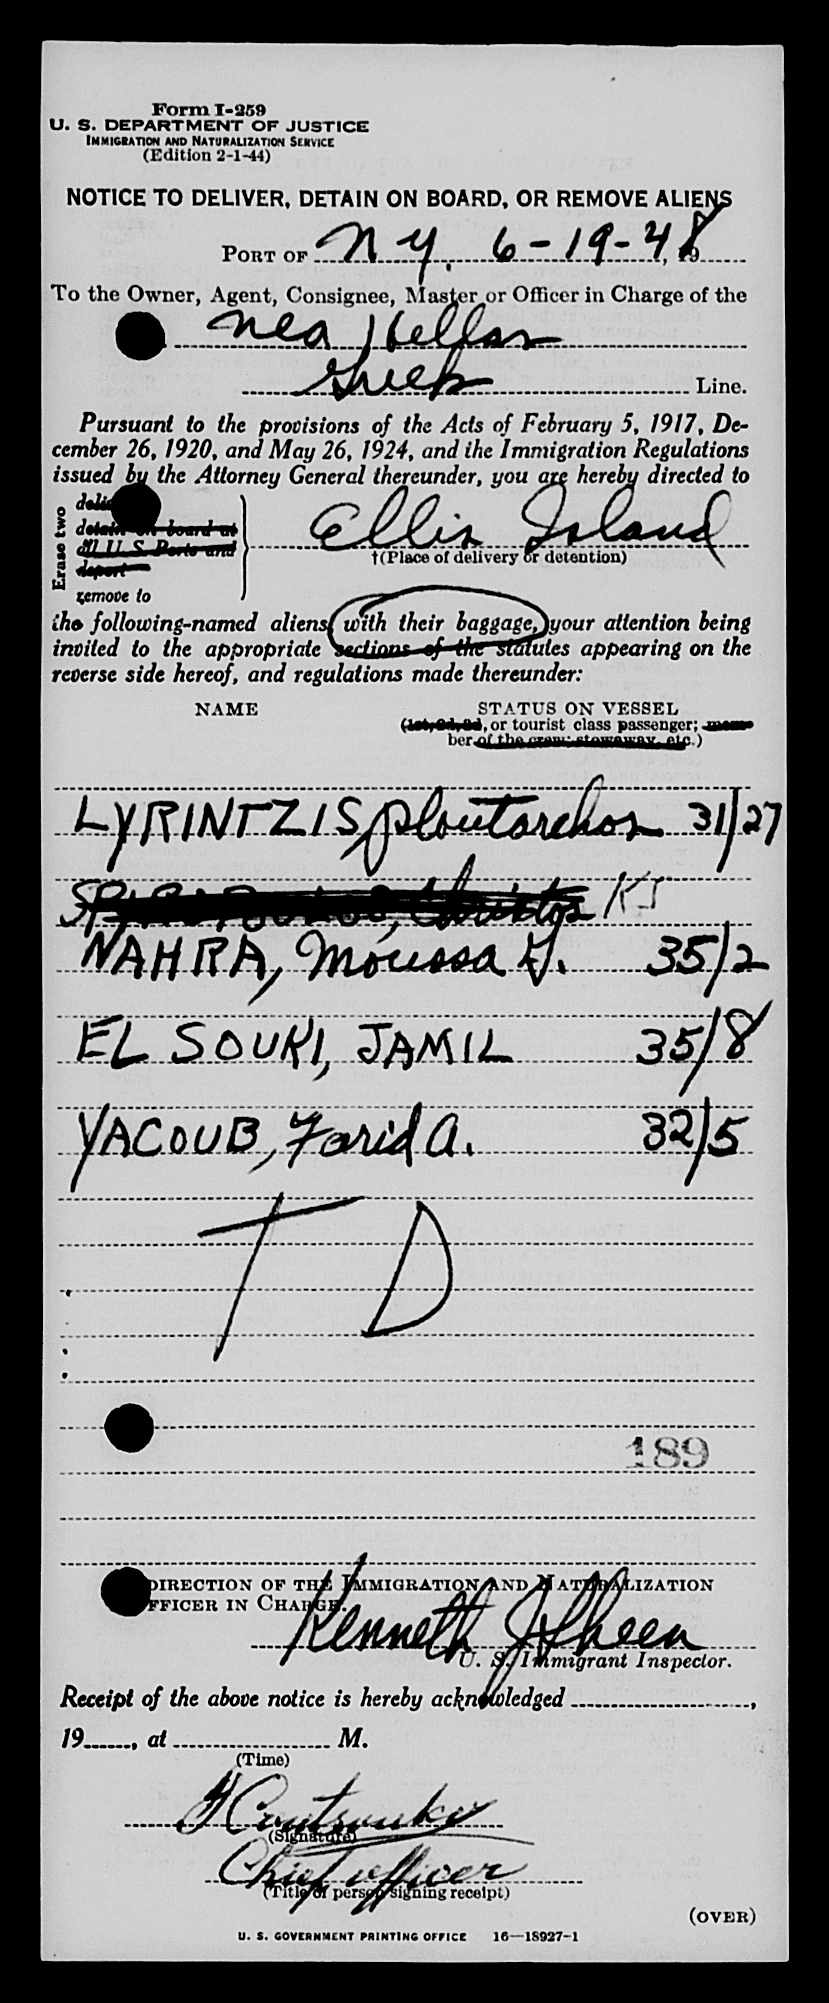 Form I-259
U. S. DEPARTMENT OF JUSTICE
IMMIGRATION AND NATURALIZATION SERVICE
(Edition 2-1-44)
NOTICE TO DELIVER, DETAIN ON BOARD, OR REMOVE ALIENS
PORT OF N.Y. 6-19-48, 19
To the Owner, Agent, Consignee, Master or Officer in Charge of the
Nea Hellas
Greek Line.
Pursuant to the provisions of the Acts of February 5, 1917, De-
cember 26, 1920, and May 26, 1924, and the Immigration Regulations
issued by the Attorney General thereunder, you are hereby directed to
Erase two
detain on board at
all U. S. Ports and
deport
remove to
Ellis Island
†(Place of delivery or detention)
the following-named aliens, with their baggage, your attention being
invited to the appropriate sections of the statutes appearing on the
reverse side hereof, and regulations made thereunder:
NAME STATUS ON VESSEL
(1st, 2d, 3d, or tourist class passenger; mem-
ber of the crew; stowaway, etc.)
LYRINTZIS, Ploutarchos 31/27
Christos KJ
NAHRA, Moussa G. 35/2
EL SOUKI, JAMIL 35/8
YACOUB, Farid A. 32/5
T D
189
DIRECTION OF THE IMMIGRATION AND NATURALIZATION
OFFICER IN CHARGE.
Kenneth J Sheen
U. S. Immigrant Inspector.
Receipt of the above notice is hereby acknowledged ,
19 , at M.
(Time)
(Signature)
Chief officer
(Title of person signing receipt)
(OVER)
U. S. GOVERNMENT PRINTING OFFICE 16—18927-1